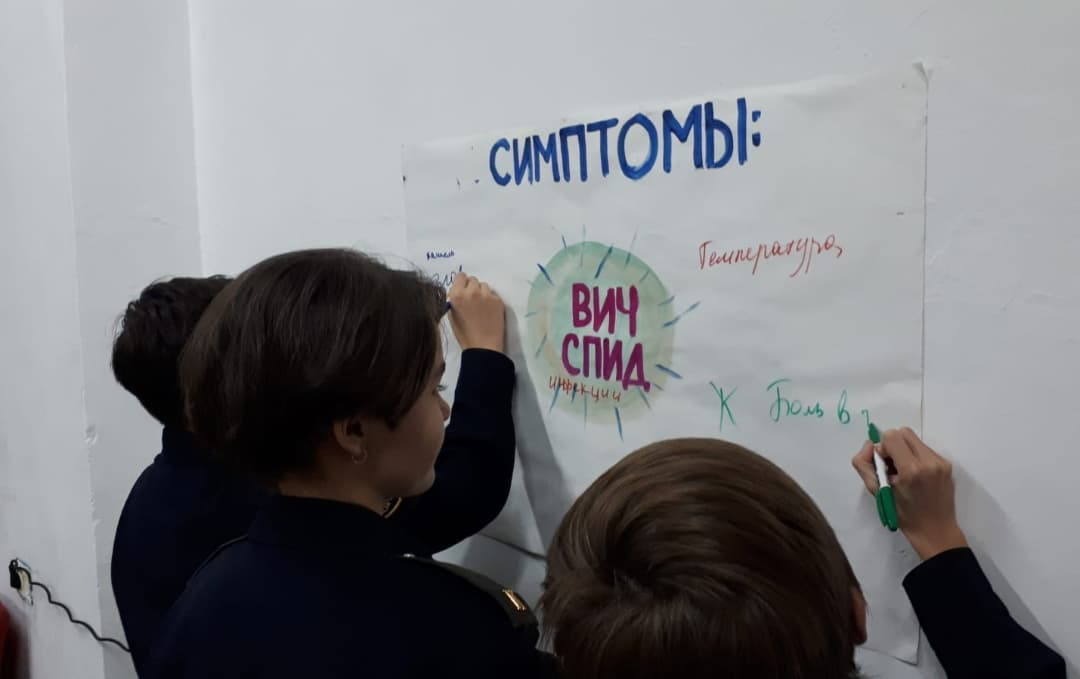 СИМПТОМЫ:
кашель
Температура
ВИЧ
СПИД
инфекции
Ж Боль в